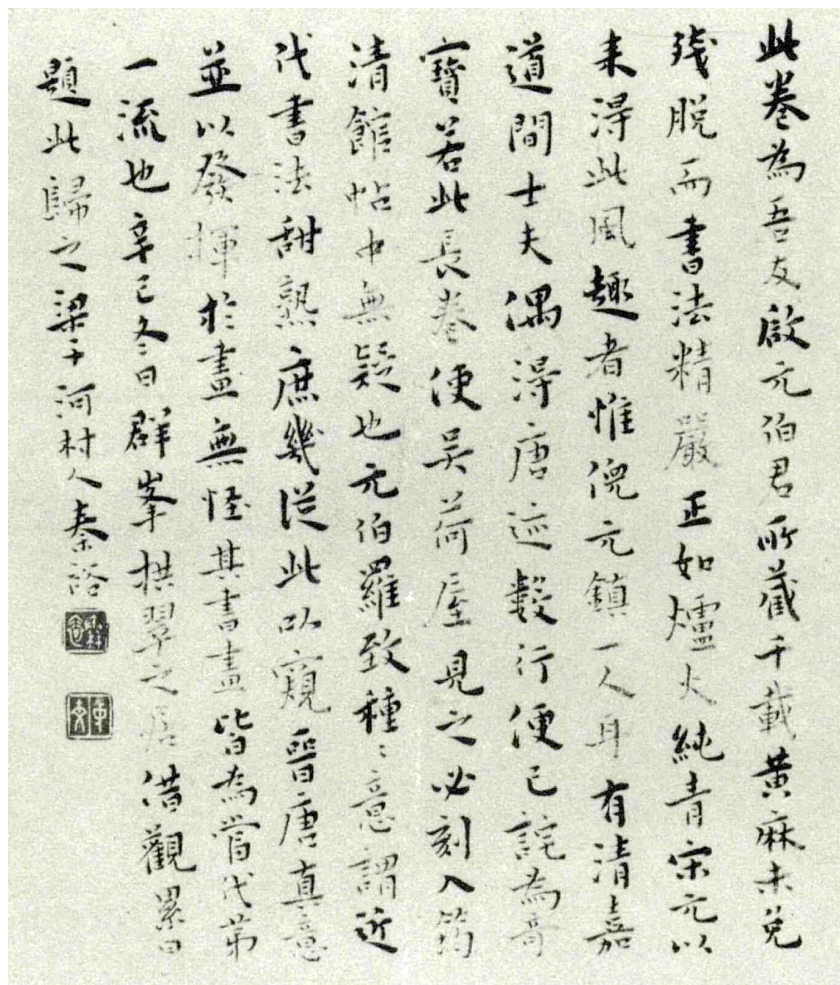 此卷為吾友啟元伯君所藏千載黃麻未免
殘脫而書法精嚴正如爐火純青宋元以
來得此風趣者惟倪元鎮一人耳有清嘉
道間士夫偶得唐迹數行便已詫為奇
寶若此長卷使吴荷屋見之必刻入筠
清館帖中無疑也元伯羅致種〻意謂近
代書法甜熟庶幾從此以窺晉唐真意
並以發揮於畫無怪其書畫皆為當代第
一流也辛巳冬日群峯拱翠之居借觀累日
題此歸之梁子河村人秦裕